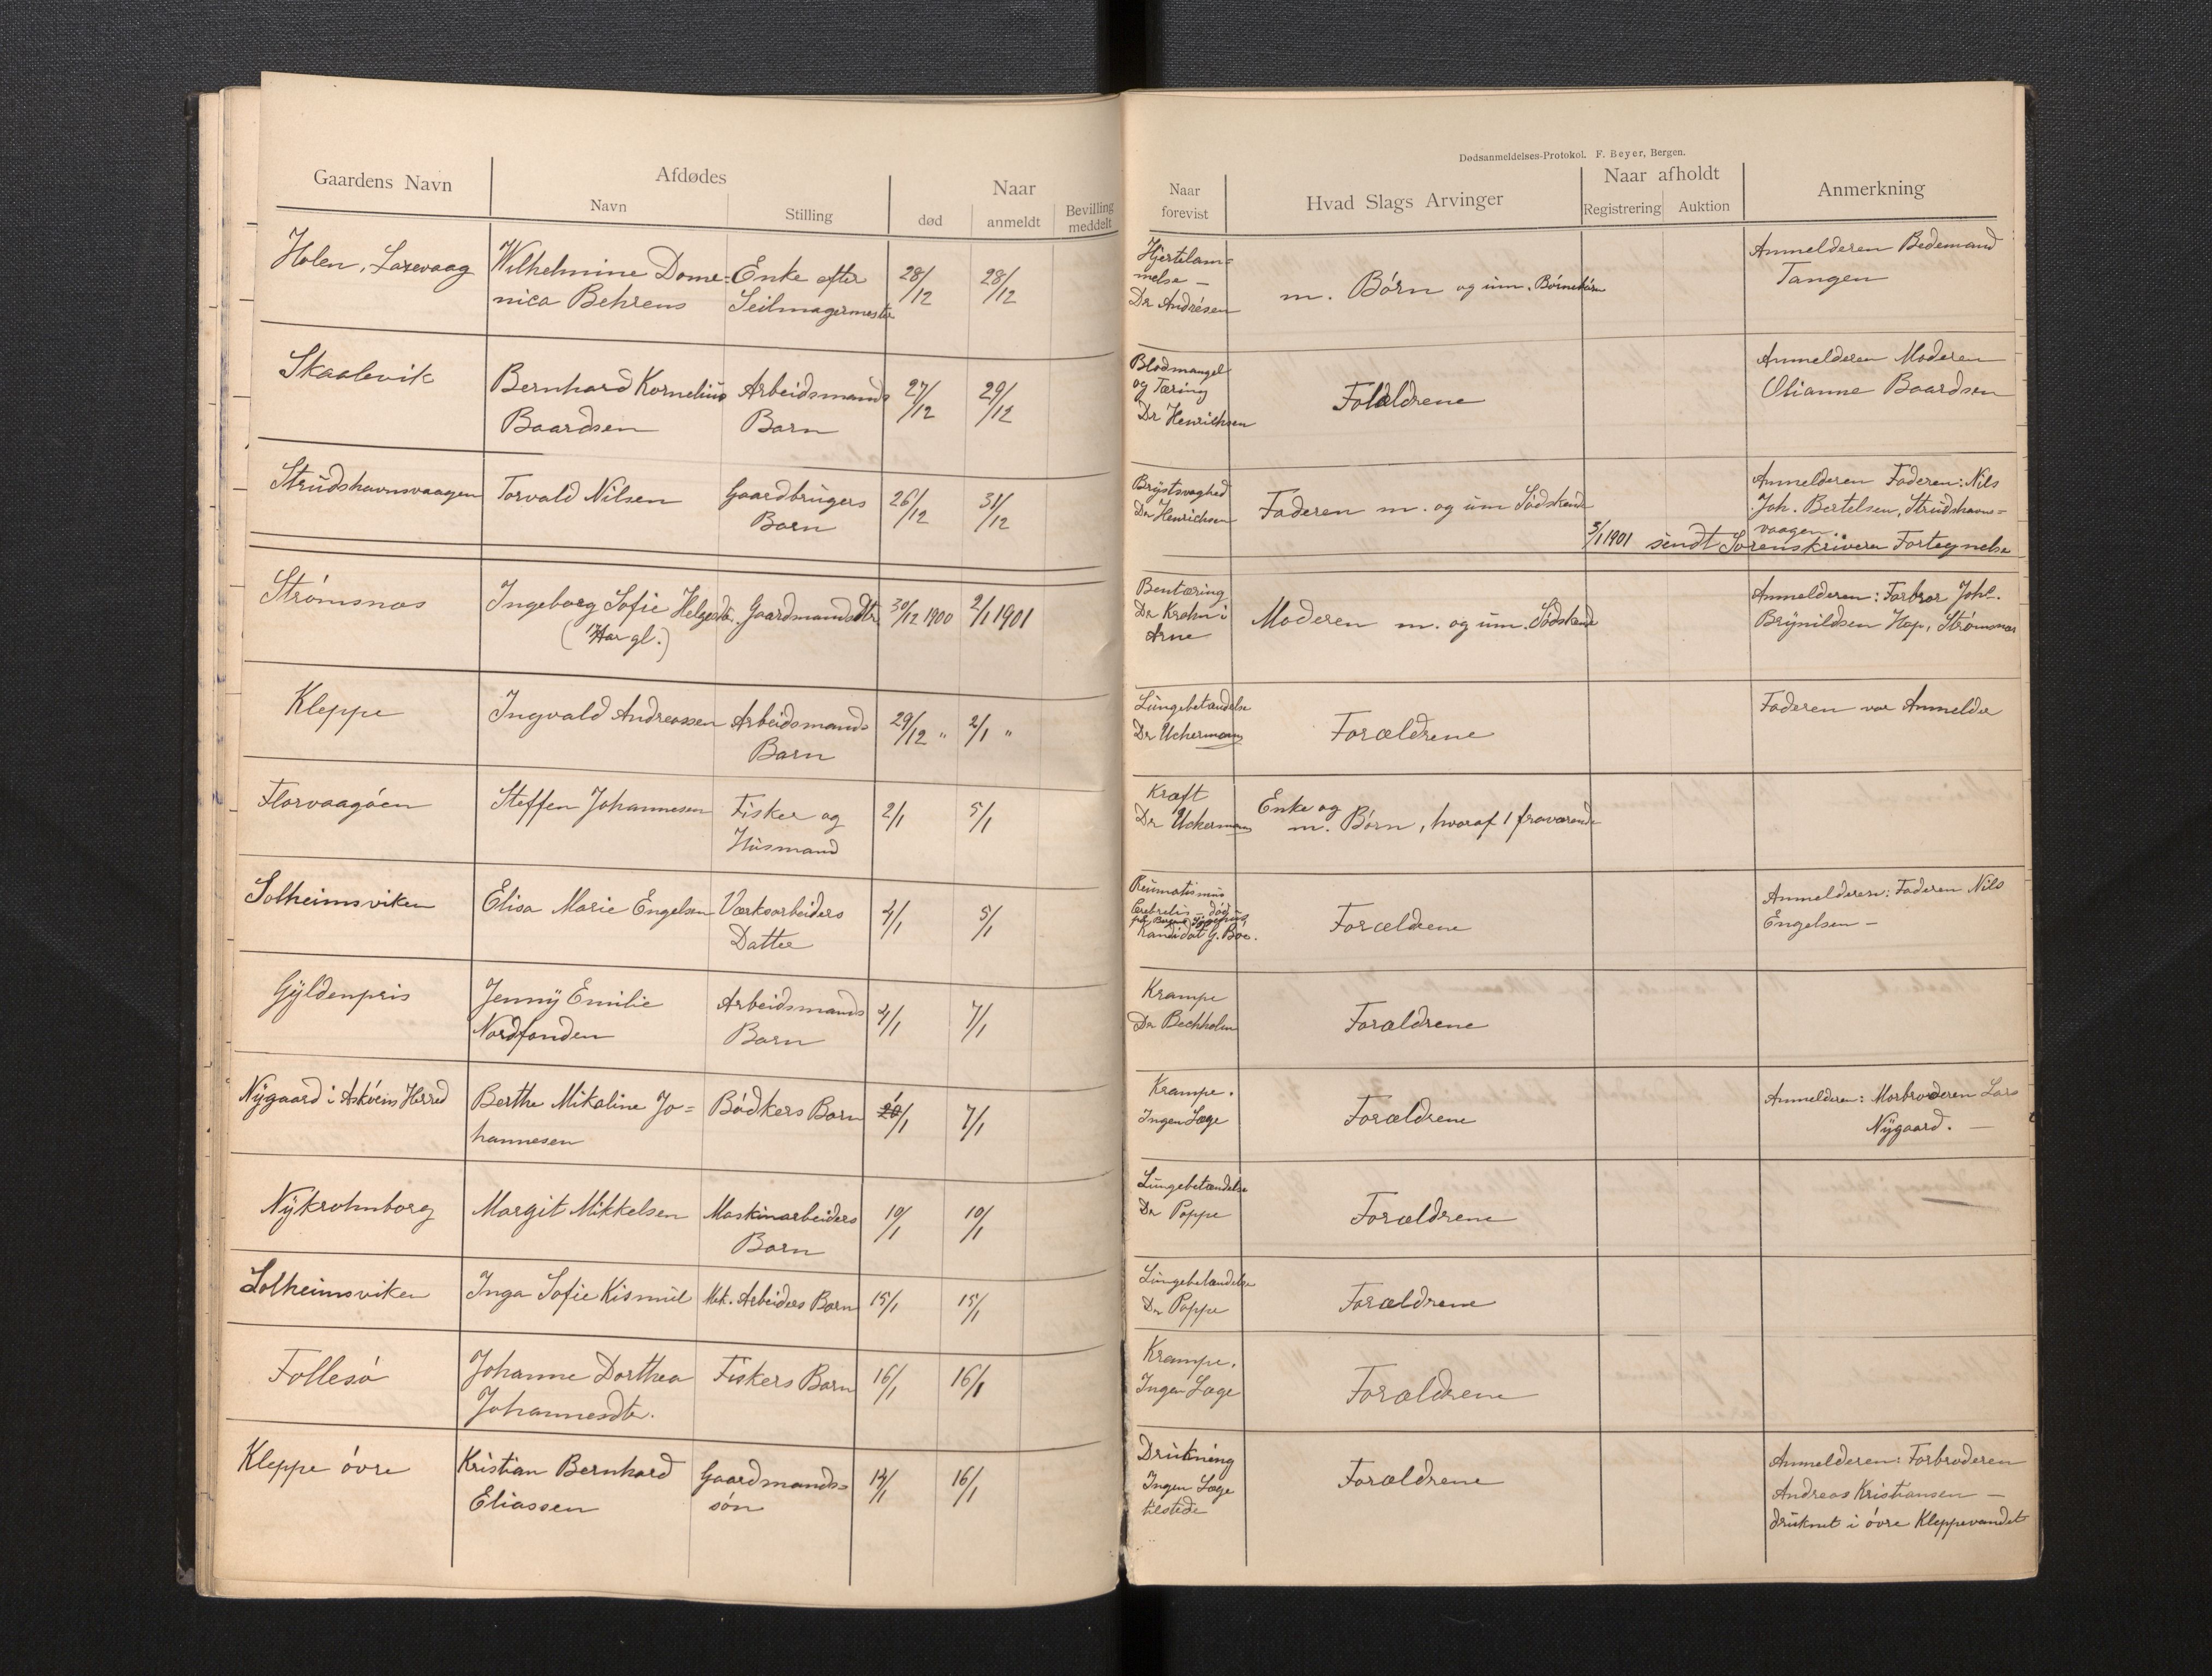 Dødsanmeldelses-Protokol. F. Beyer, Bergen.
Gaardens Navn
Afdødes
Naar
Navn
Stilling
død
anmeldt
Bevilling
meddelt
Naar
forevist
Hvad Slags Arvinger
Naar afholdt
Registrering
Auktion
Anmerkning
Holen, Laxevaag
Wilhelmine Dome-
nica Behrens
Enke efter
Seilmagermester
28/12
28/12
Hjertelam=
melse —
Dr Andresen
m. Børn og um. Børnebørn
Anmelderen Bedemand
Tangen
Skaalevik
Bernhard Kornelius
Baardsen
Arbeidsmands
Barn
27/12
29/12
Blodmangel
og Tæring
Dr Henrichsen
Anmelderen Moderen
Olianne Baardsen
Strudshavnsvaagen
Torvald Nilsen
Gaardbrugers
Barn
26/12
31/12
Brystsvaghed
Dr Henrichsen
Faderen m. og um Sødskende
Anmelderen Faderen: Nils
Joh. Bertelsen, Strudshavns=
vaagen
5/1 1901 sendt Sorenskriveren Fortegnelse
Strømsnæs
Ingeborg Sofie Helgesdtr.
(1/4 Aar gl.)
Gaardmandsdtr
30/12 1900
2/1 1901
Bentæring
Dr Krohn i
Arne
Moderen m. og um. Sødskende
Anmelderen: Farbror Johs.
Brynildsen Hop, Strømsnæs
Kleppe
Ingvald Andreassen
Arbeidsmands
Barn
29/12 "
2/1 "
Lungebetændelse
Dr Uchermann
Forældrene
Faderen var Anmelder
Florvaagøen
Steffen Johannesen
Fisker og
Husmand
2/1
5/1
Kræft
Dr Uckermann
Enke og
m. Børn, hvoraf 1 fraværende
Solheimsviken
Elisa Marie Engelsen
Værksarbeiders
Datter
4/1
5/1
Reumatismus
Cerebralis — død
på Bergens Sygehus
Kandidat G. Bøe.
Forældrene
Anmelderen: Faderen Nils
Engelsen —
Gyldenpris
Jenny Emilie
Nordfonden
Arbeidsmands
Barn
4/1
7/1
Krampe
Dr Bechholm
Forældrene
Nygaard i Askøens Herred
Berthe Mikaline Jo=
hannesen
Bødkers Barn
7/1
Krampe.
Ingen Læge
Forældrene
Anmelderen: Morbroderen Lars
Nygaard. —
Nykrohnborg
Margit Mikkelsen
Maskinarbeiders
Barn
10/1
10/1
Lungebetændelse
Dr Poppe
Forældrene
Solheimsviken
Inga Sofie Kismul
Mek. Arbeiders Barn
15/1
15/1
Lungebetændelse
Dr Poppe
Forældrene
Follesø
Johanne Dorthea
Johannesdtr.
Fiskers Barn
16/1
16/1
Krampe.
Ingen Læge
Forældrene
Kleppe øvre
Kristian Bernhard
Eliassen
Gaardmands=
søn
14/1
16/1
Drukning
Ingen Læge
tilstede
Forældrene
Anmelderen: Farbroderen
Andreas Kristiansen —
druknet i øvre Kleppevandet